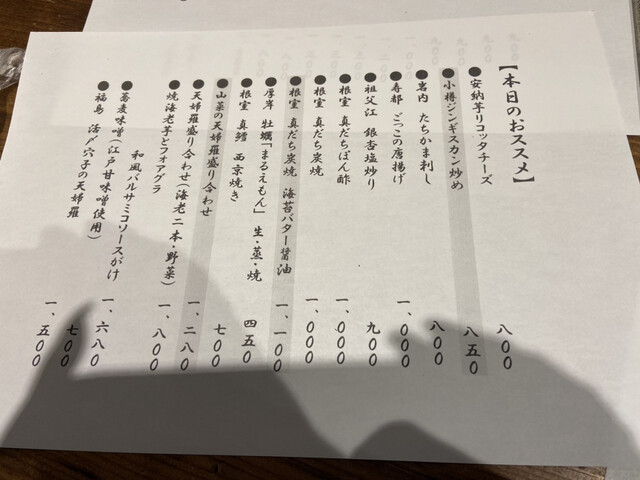 【本日のおススメ】
●安納芋リコッタチーズ 八〇〇
●小樽ジンギスカン炒め 八五〇
●岩内 たちかま刺し 八〇〇
●寿都 ごっこの唐揚げ 一、〇〇〇
●祖父江 銀杏塩炒り 九〇〇
●根室 真だちぽん酢 一、〇〇〇
●根室 真だち炭焼 一、〇〇〇
●根室 真だち炭焼 海苔バター醤油 一、一〇〇
●厚岸 牡蠣「まるえもん」生・蒸・焼 四五〇
●根室 真鱈 西京焼き 七〇〇
●山菜の天婦羅盛り合わせ 一、二八〇
●天婦羅盛り合わせ(海老二本・野菜) 一、八〇〇
●焼海老芋とフォアグラ
和風バルサミコソースがけ 一、六八〇
●蕎麦味噌(江戸甘味噌使用) 七〇〇
●福島 活〆穴子の天婦羅 一、五〇〇